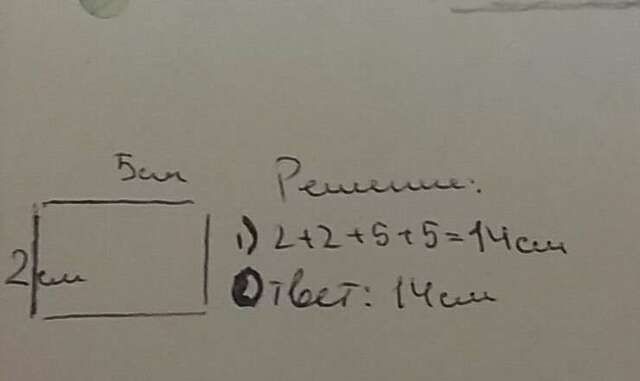 5см
Решение:
2см
1) 2+2+5+5=14см
Ответ: 14см